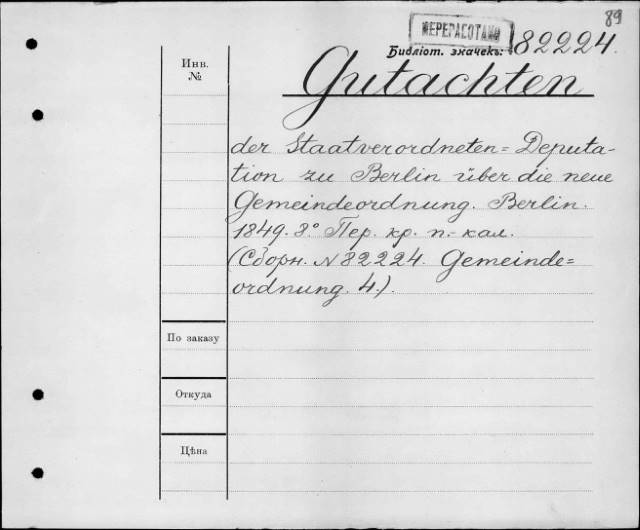 89
ПЕРЕРАБОТАНО
Библіот. значекъ: 82224.
Gutachten
Инв.
№
der Staatverordneten= Deputa-
tion zu Berlin über die neue
Gemeindeordnung. Berlin.
1849. 8° Пер. кр. п.-кал.
(Сборн. N 82224. Gemeinde=
ordnung. 4.).
По заказу
Откуда
Цѣна